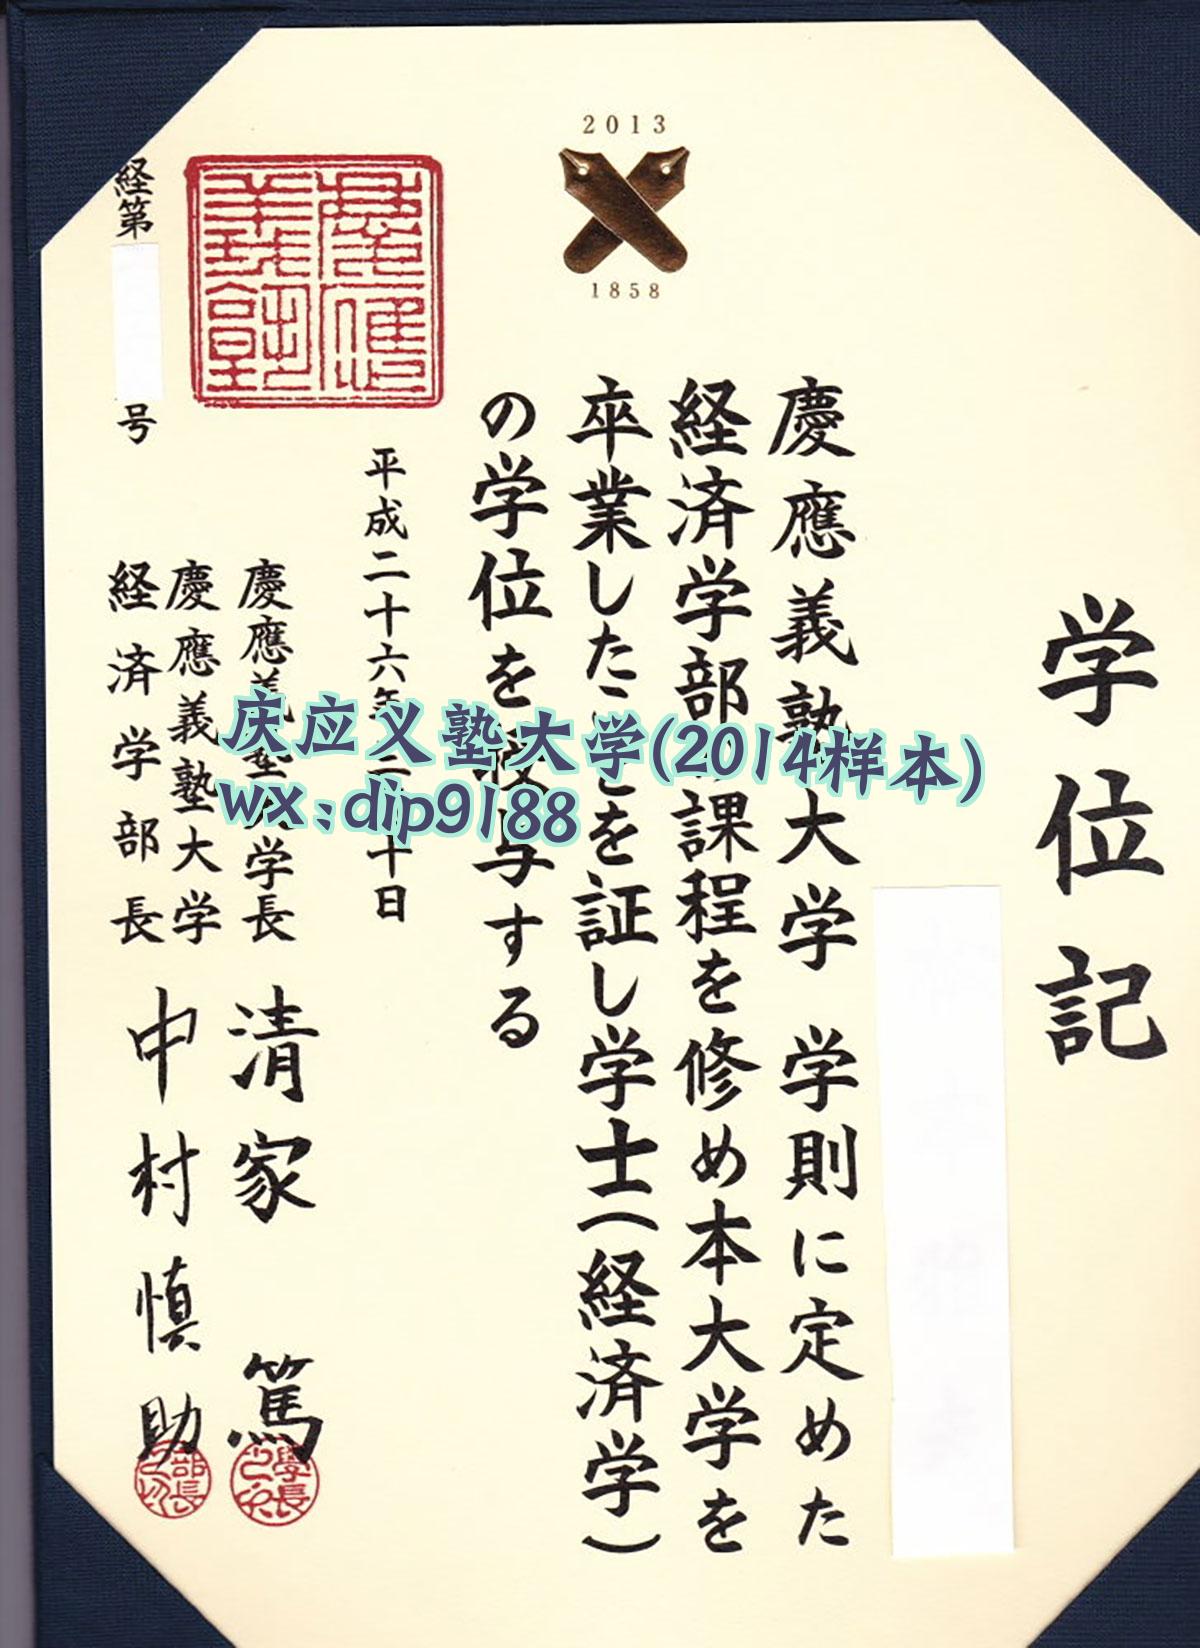 2013
1858
学位記
慶應義塾大学 学則に定めた
経済学部の課程を修め本大学を
卒業したことを証し学士(経済学)
の学位を授与する
平成二十六年三月二十日
慶應義塾大学長 清家 篤
慶應義塾大学
経済学部長 中村慎助
経第
号
慶應義塾
學長
部長
庆应义塾大学(2014样本)
wx:dip9188